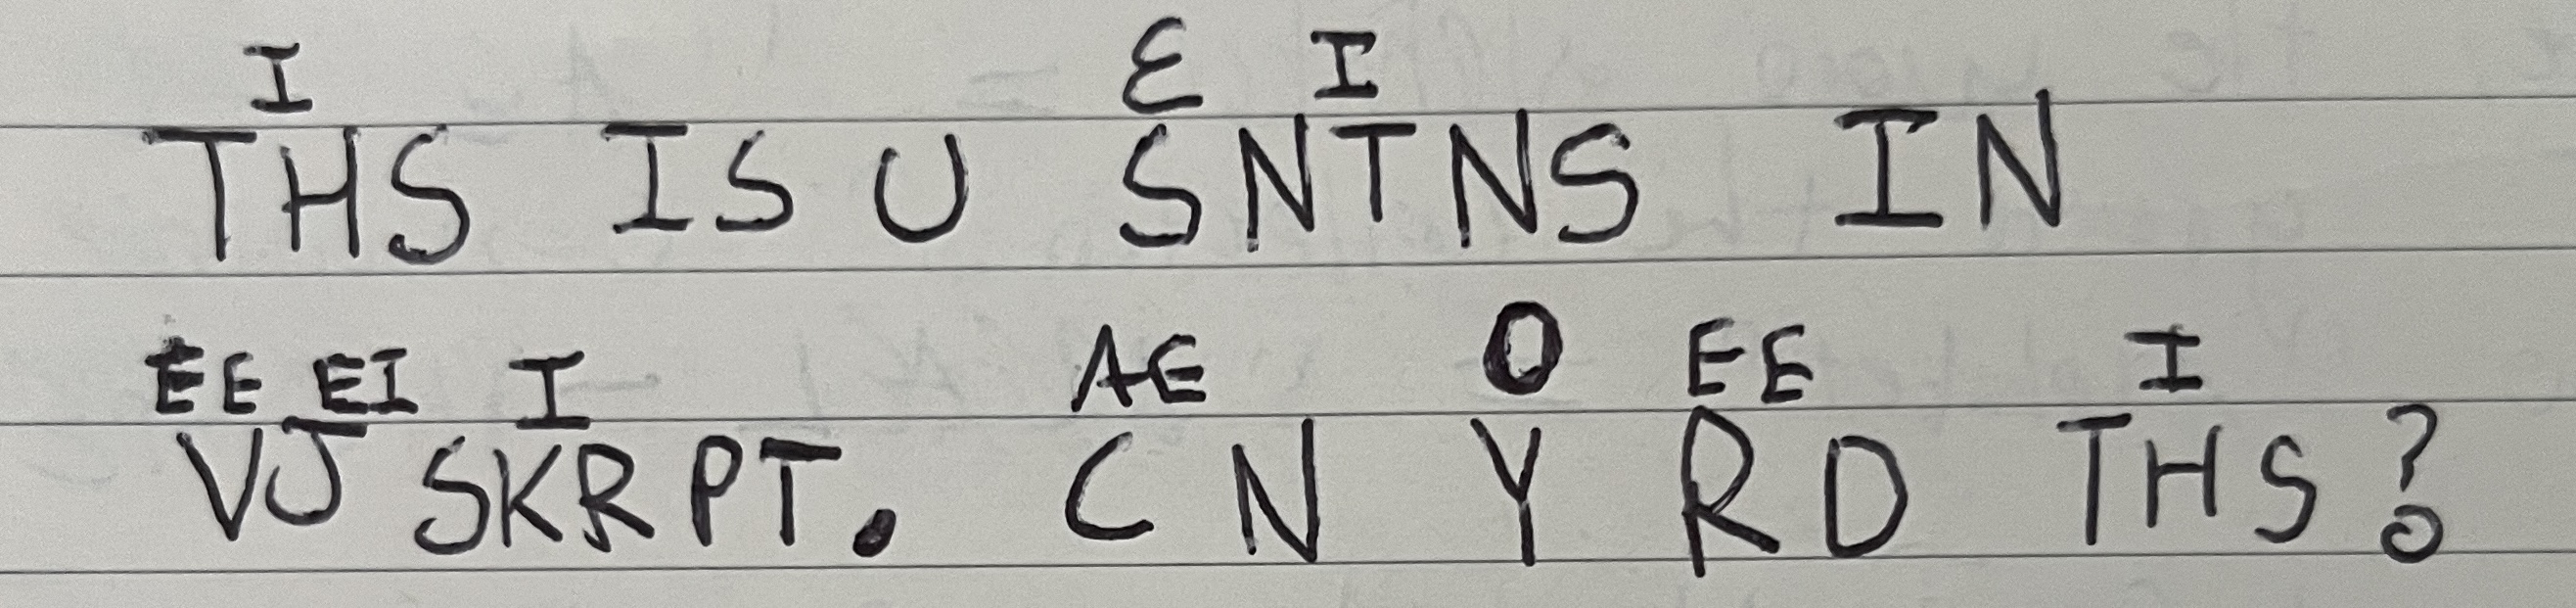 I Ɛ I
THS IS U SNTNS IN
EE EI I AE O EE I
VJ SKRPT. CN Y RD THS?